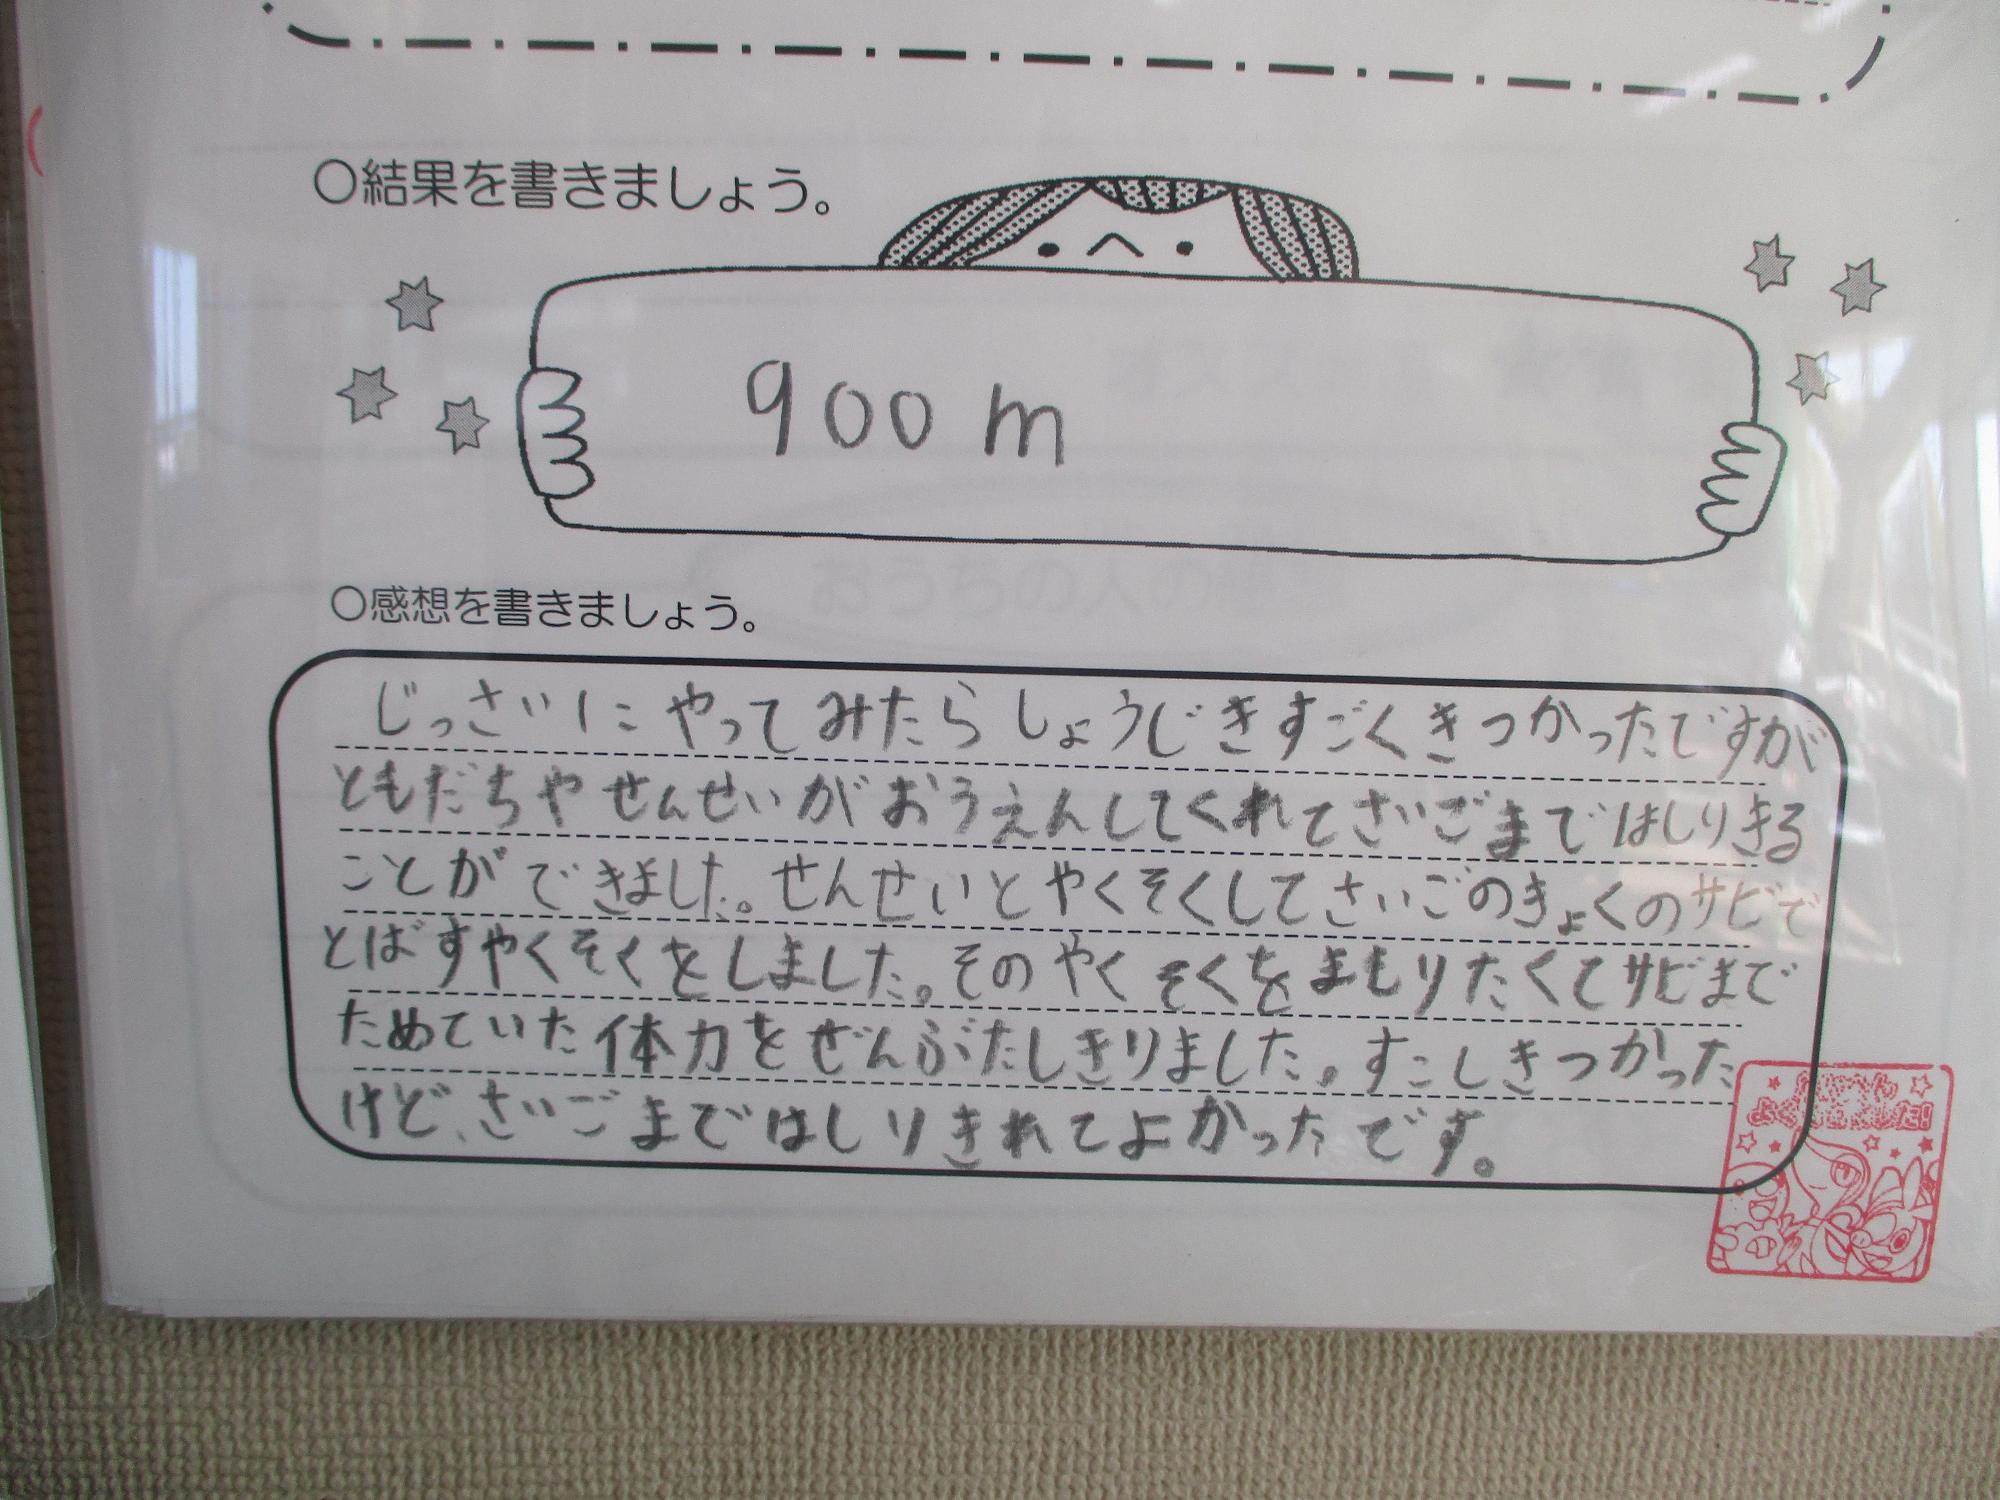 〇結果を書きましょう。
900m
〇感想を書きましょう。
じっさいにやってみたらしょうじきすごくきつかったですが
ともだちやせんせいがおうえんしてくれてさいごまではしりきる
ことができました。せんせいとやくそくしてさいごのきょくのサビで
とばすやくそくをしました。そのやくそくをまもりたくてサビまで
ためていた体力をぜんぶだしきりました。すこしきつかった
けど、さいごまではしりきれてよかったです。